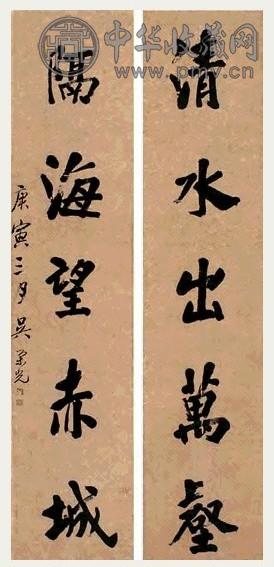 中华收藏网
www.pmv.cn
清水出萬壑
隔海望赤城
庚寅三月吳榮光